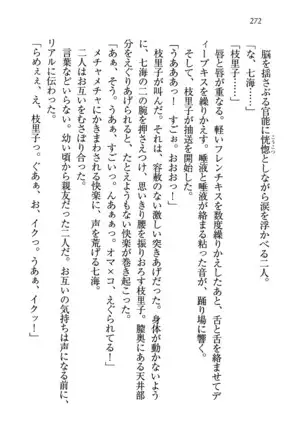 272
脳を揺さぶる官能に恍惚としながら涙を浮かべる二人。
「な、七海……」
「枝里子……」
唇と唇が重なる。軽いフレンチキスを数度繰りかえすと、舌と舌を絡ませてデ
ィープキスを繰りかえす。唾液と唾液が絡まる粘った音が、踊り場に響く。
そして、枝里子が抽送を開始した。
「うあああっ! すごぉ。おおおっ!」
枝里子が叫んだ。それは、容赦のない激しい突きあげだった。身体が動かないよう
に、七海の二の腕を押さえつけ、思いきり腰を振りおろす枝里子。膣奥にある天井部
分をえぐりあげられると、たとえようもない快楽が巻き起こった。
「あぁ、そう。うあぁ、すごいっ。んあぁぁっ。オマ×コ、えぐられてる!」
メチャメチャにかきまわされる快楽に、声を荒げる七海。
二人はお互いを支えあい、むさぼり合った。
言葉などいらない。幼い頃から親友だった二人だ。お互いの気持ちは声になる前に、
リアルに伝わった。
「らめぇぇ、え、枝里子っ。ぐあぁ、お、イクっ。うあぁ、イクッー!」